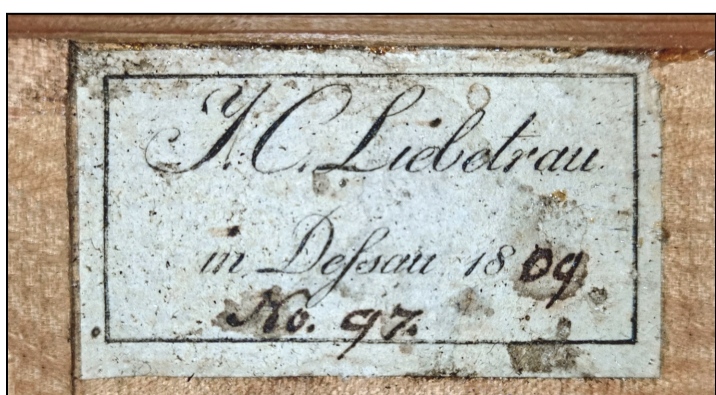 J. C. Liebetrau
in Deſsau 1809
No. 97.